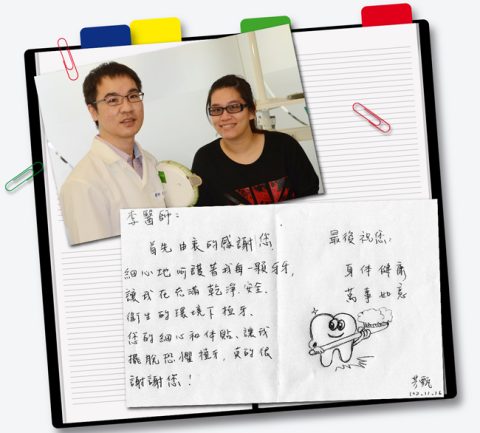 李醫師：
首先由衷的感謝您
細心地呵護著我每一顆牙牙,
讓我在充滿乾淨、安全、
衛生的環境下植牙、
您的細心和体貼、讓我
擺脫恐懼植牙,真的很
謝謝您！
最後祝您,
身体健康
萬事如意